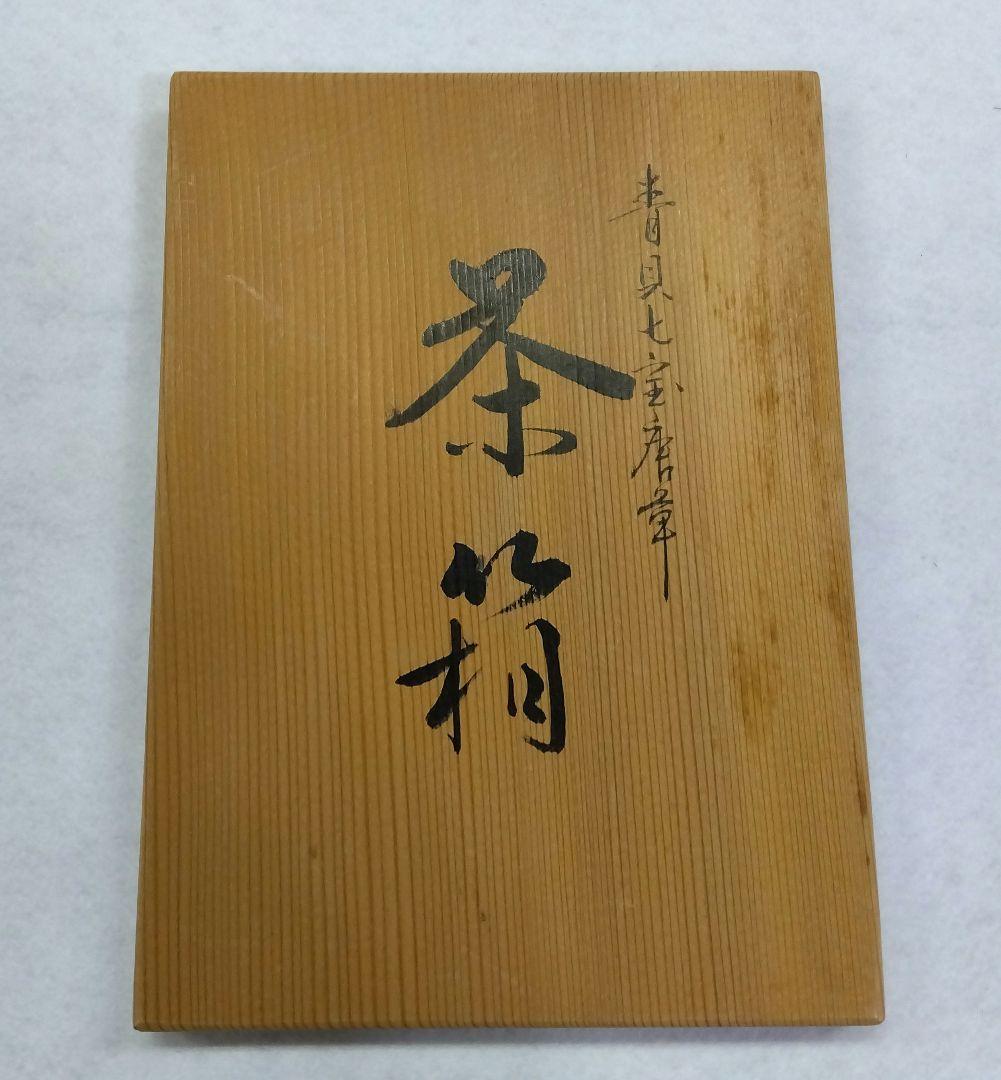 青貝七宝唐草
茶箱